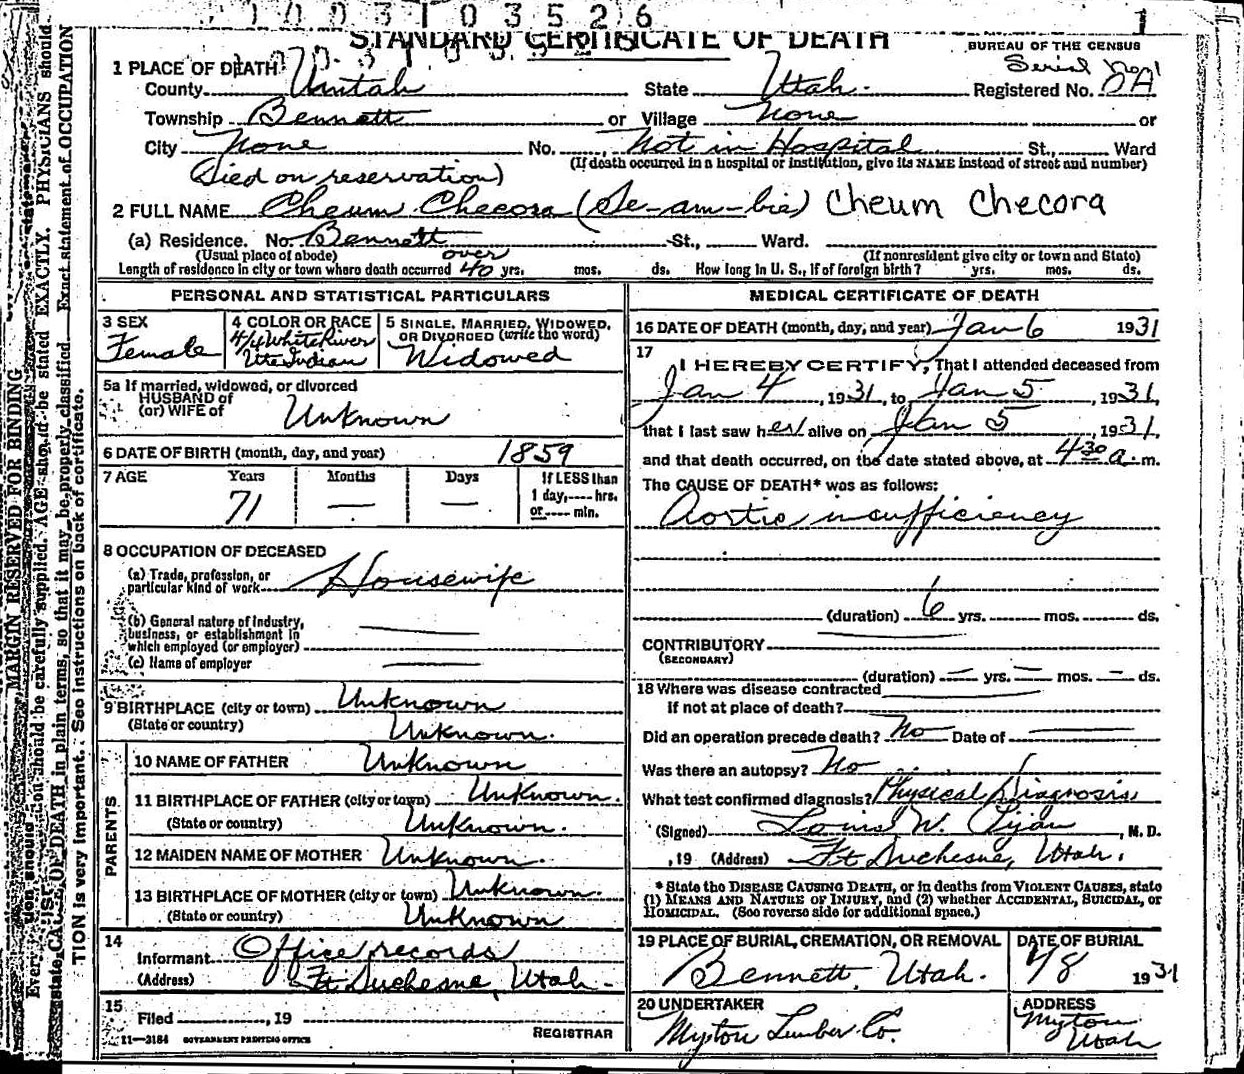 1 0 0 3 1 0 3 5 2 6
1
STANDARD CERTIFICATE OF DEATH
BUREAU OF THE CENSUS
1 PLACE OF DEATH
Serial No.
County Uintah State Utah. Registered No. 2A
Township Bennett or Village None or
City None No. Not in Hospital St., Ward
(Died on reservation) (If death occurred in a hospital or institution, give its NAME instead of street and number)
2 FULL NAME Cheum Checora (Se-am-bie) Cheum Checora
(a) Residence. No. Bennett St., Ward.
(Usual place of abode) over (If nonresident give city or town and State)
Length of residence in city or town where death occurred 40 yrs. mos. ds. How long in U. S., if of foreign birth? yrs. mos. ds.
PERSONAL AND STATISTICAL PARTICULARS
3 SEX
Female
4 COLOR OR RACE
4/4 White River
Ute Indian
5 SINGLE, MARRIED, WIDOWED,
OR DIVORCED (write the word)
Widowed
5a If married, widowed, or divorced
HUSBAND of
(or) WIFE of Unknown
6 DATE OF BIRTH (month, day, and year) 1859
7 AGE Years Months Days If LESS than
71 — — 1 day, ---- hrs.
or ---- min.
8 OCCUPATION OF DECEASED
(a) Trade, profession, or
particular kind of work Housewife
(b) General nature of industry,
business, or establishment in
which employed (or employer)
(c) Name of employer
9 BIRTHPLACE (city or town) Unknown
(State or country) Unknown.
PARENTS
10 NAME OF FATHER Unknown
11 BIRTHPLACE OF FATHER (city or town) Unknown.
(State or country) Unknown.
12 MAIDEN NAME OF MOTHER Unknown.
13 BIRTHPLACE OF MOTHER (city or town) Unknown.
(State or country) Unknown
14
Informant Office records
(Address) Ft Duchesne, Utah.
15
Filed , 19
REGISTRAR
11—3184 GOVERNMENT PRINTING OFFICE
MEDICAL CERTIFICATE OF DEATH
16 DATE OF DEATH (month, day, and year) Jan 6 1931
17
I HEREBY CERTIFY, That I attended deceased from
Jan 4, 1931, to Jan 5, 1931,
that I last saw her alive on Jan 5, 1931,
and that death occurred, on the date stated above, at 4 30 a. m.
The CAUSE OF DEATH* was as follows:
Aortic insufficiency
(duration) 6 yrs. mos. ds.
CONTRIBUTORY
(SECONDARY)
(duration) — yrs. — mos. — ds.
18 Where was disease contracted
If not at place of death?
Did an operation precede death? No Date of
Was there an autopsy? No
What test confirmed diagnosis? Physical Diagnosis
(Signed) Louis W. , M. D.
, 19 (Address) Ft Duchesne, Utah.
* State the DISEASE CAUSING DEATH, or in deaths from VIOLENT CAUSES, state
(1) MEANS AND NATURE OF INJURY, and (2) whether ACCIDENTAL, SUICIDAL, or
HOMICIDAL. (See reverse side for additional space.)
19 PLACE OF BURIAL, CREMATION, OR REMOVAL
Bennett, Utah.
DATE OF BURIAL
1/8 1931
20 UNDERTAKER
Myton Lumber Co.
ADDRESS
Myton
Utah
MARGIN RESERVED FOR BINDING
should be carefully supplied. AGE should be stated EXACTLY. PHYSICIANS should
state CAUSE OF DEATH in plain terms, so that it may be properly classified. Exact statement of OCCUPATION
TION is very important. See instructions on back of certificate.